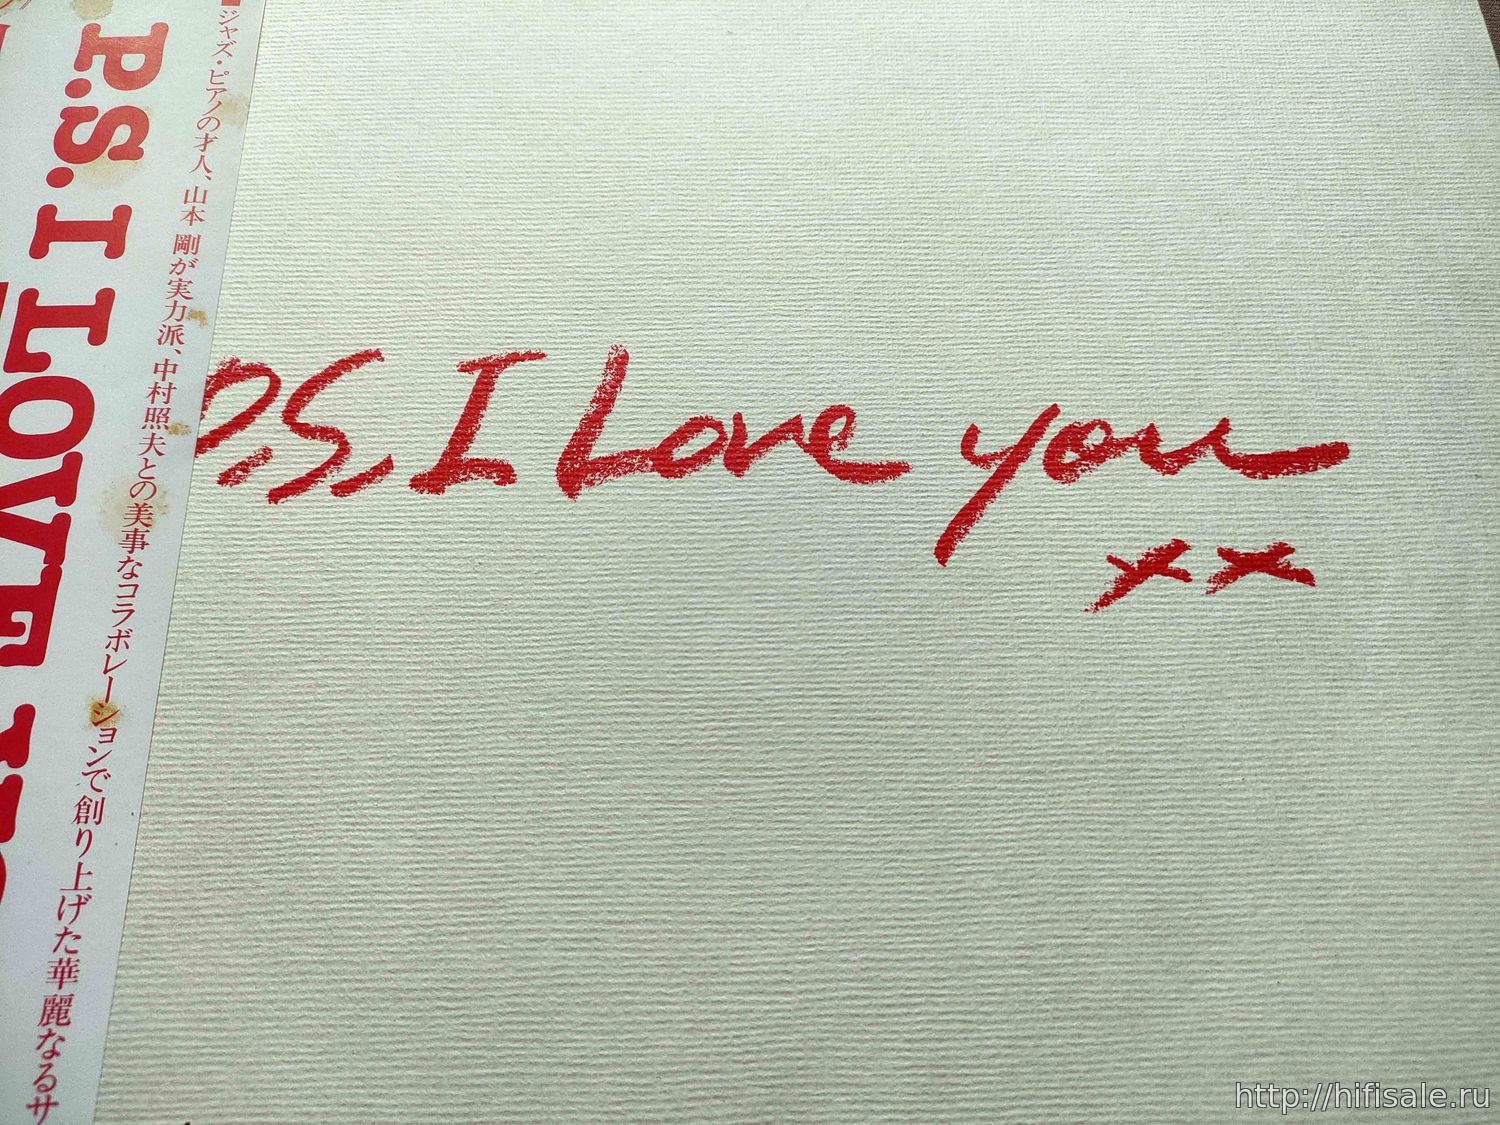 P.S. I LOVE YO
ジャズ・ピアノの才人、山本 剛が実力派、中村照夫との美事なコラボレーションで創り上げた華麗なるサ
P.S. I Love you
xx
http://hifisale.ru